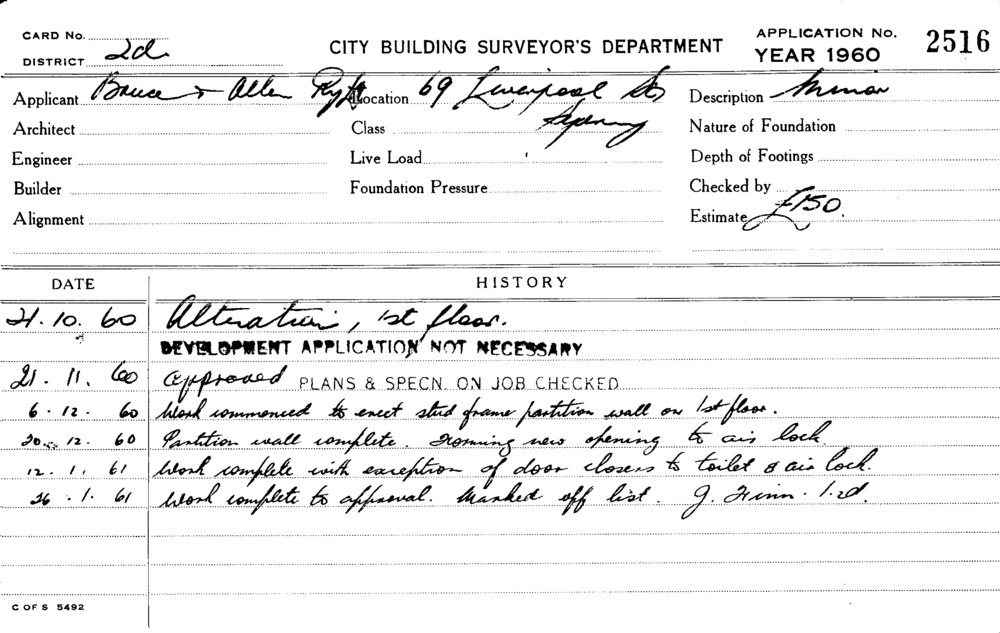 CARD No.
DISTRICT 2d
CITY BUILDING SURVEYOR'S DEPARTMENT
APPLICATION No. 2516
YEAR 1960
Applicant Bruce & Allen Pty Ltd Location 69 Liverpool St Description Minor
Sydney
Architect Class Nature of Foundation
Engineer Live Load Depth of Footings
Builder Foundation Pressure Checked by
Alignment Estimate £150.
DATE HISTORY
21.10.60 Alterations, 1st floor.
DEVELOPMENT APPLICATION NOT NECESSARY
21.11.60 Approved PLANS & SPECN. ON JOB CHECKED
6.12.60 Work commenced to erect stud frame partition wall on 1st floor.
20.12.60 Partition wall complete. Forming new opening to air lock
12.1.61 Work complete with exception of door closers to toilet & air lock.
26.1.61 Work complete to approval. Marked off list. J. Finn. 1.2d.
C OF S 5492